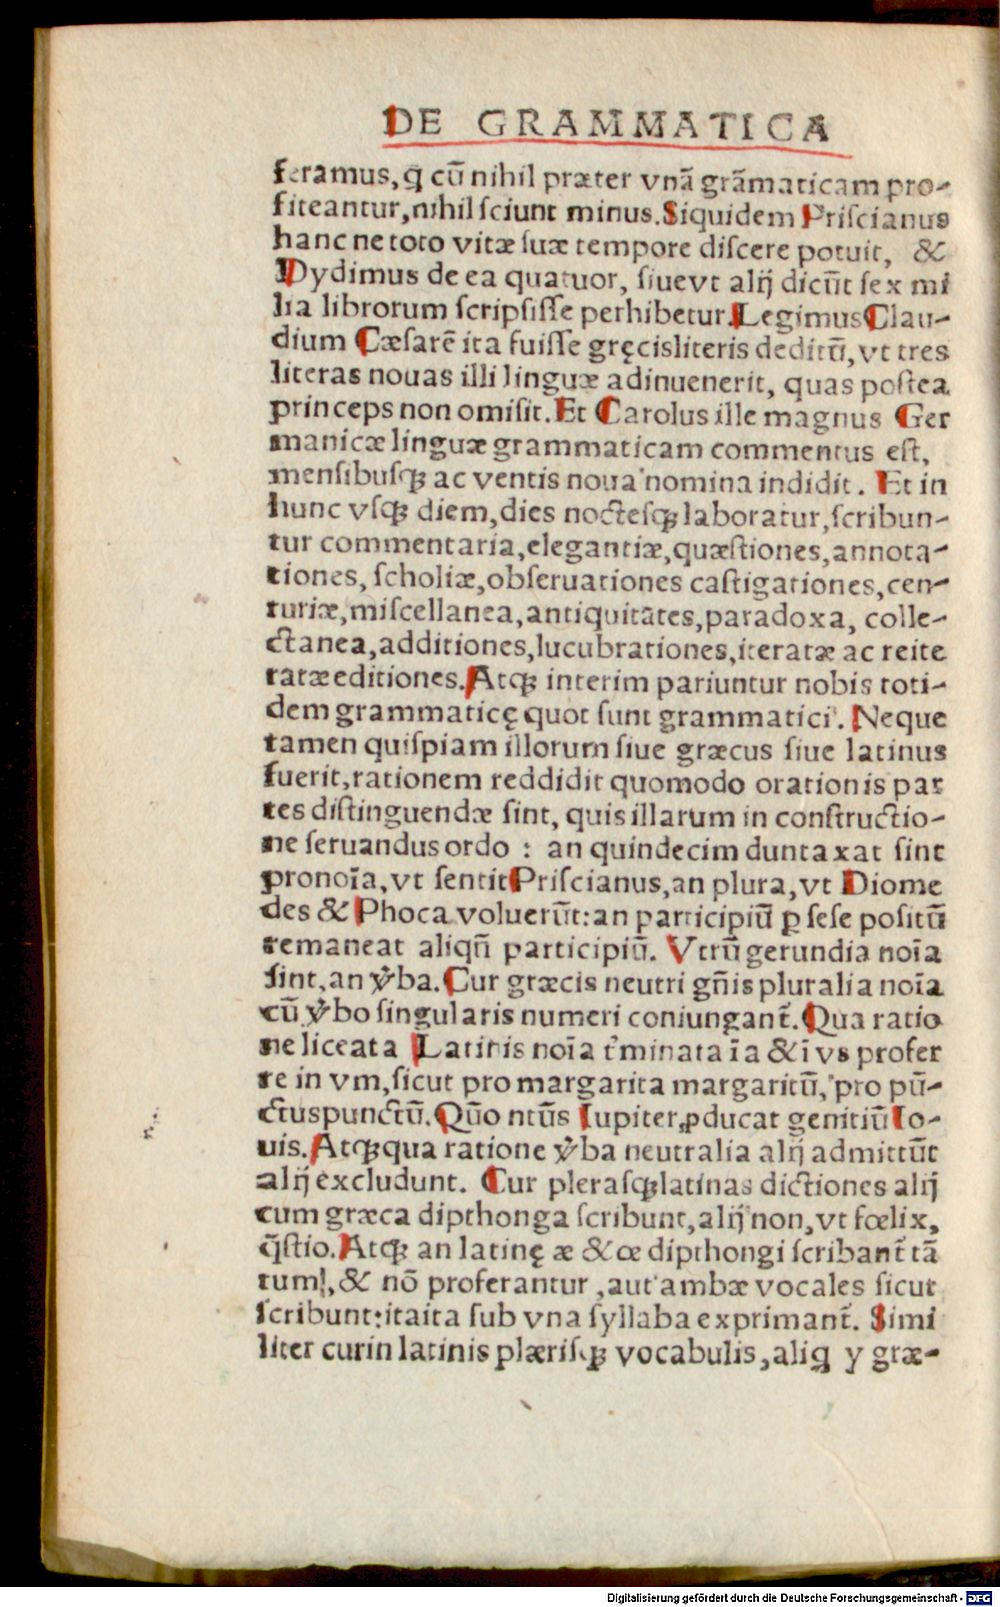 DE GRAMMATICA
feramus, ꝙ cū nihil præter vnā grāmaticam pro-
fiteantur, nihil sciunt minus. Siquidem Priscianus
hanc ne toto vitæ suæ tempore discere potuit, &
Dydimus de ea quatuor, siue vt alij dicūt sex mi
lia librorum scripsisse perhibetur. Legimus Clau-
dium Cæsarē ita fuisse gręcis literis deditū, vt tres
literas nouas illi linguæ adinuenerit, quas postea
princeps non omisit. Et Carolus ille magnus Ger
manicæ linguæ grammaticam commentus est,
mensibusqꝫ ac ventis noua nomina indidit. Et in
hunc vsqꝫ diem, dies noctesqꝫ laboratur, scribun-
tur commentaria, elegantiæ, quæstiones, annota-
tiones, scholiæ, obseruationes castigationes, cen-
turiæ, miscellanea, antiquitates, paradoxa, colle-
ctanea, additiones, lucubrationes, iteratæ ac reite
ratæ editiones. Atqꝫ interim pariuntur nobis toti-
dem grammaticę quot sunt grammatici. Neque
tamen quispiam illorum siue græcus siue latinus
fuerit, rationem reddidit quomodo orationis par
tes distinguendæ sint, quis illarum in constructio-
ne seruandus ordo : an quindecim duntaxat sint
pronoīa, vt sentit Priscianus, an plura, vt Diome
des & Phoca voluerūt: an participiū ꝑ sese positū
remaneat aliqñ participiū. Vtrū gerundia noīa
sint, an v̓ba. Cur græcis neutri gñis pluralia noīa
cū v̓bo singularis numeri coniungant̄. Qua ratio
ne liceata Latinis noīa t̓minata īa & ī vs profer
re in vm, sicut pro margarita margaritū, pro pū-
ctus punctū. Quō ntūs Iupiter ꝓducat genitiū Io-
uis. Atqꝫ qua ratione v̓ba neutralia alij admittūt
alij excludunt. Cur plerasqꝫ latinas dictiones alij
cum græca dipthonga scribunt, alij non, vt fœlix,
q̄stio. Atqꝫ an latinę æ & œ dipthongi scribant̄ tā
tum, & nō proferantur, aut ambæ vocales sicut
scribunt: ita ita sub vna syllaba exprimant̄. Simi
liter cur in latinis plærisqꝫ vocabulis, aliꝗ y græ-
Digitalisierung gefördert durch die Deutsche Forschungsgemeinschaft - DFG